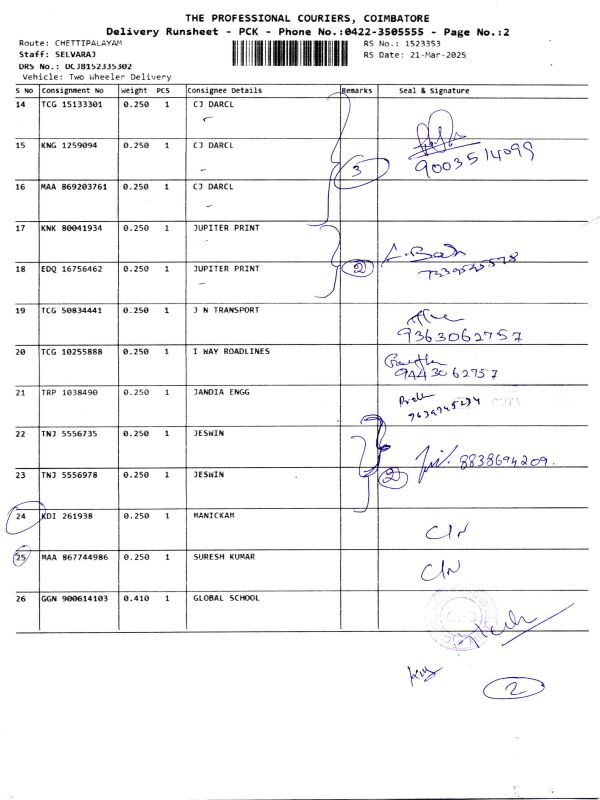 THE PROFESSIONAL COURIERS, COIMBATORE
Delivery Runsheet - PCK - Phone No.:0422-3505555 - Page No.:2
Route: CHETTIPALAYAM RS No.: 1523353
Staff: SELVARAJ RS Date: 21-Mar-2025
DRS No.: DCJB152335302
Vehicle: Two Wheeler Delivery
S No Consignment No Weight PCS Consignee Details Remarks Seal & Signature
14 TCG 15133301 0.250 1 CJ DARCL
15 KNG 1259094 0.250 1 CJ DARCL
3 9003514099
16 MAA 869203761 0.250 1 CJ DARCL
17 KNK 80041934 0.250 1 JUPITER PRINT
18 EDQ 16756462 0.250 1 JUPITER PRINT 2
19 TCG 50834441 0.250 1 J N TRANSPORT
9363062757
20 TCG 10255888 0.250 1 I WAY ROADLINES
9443062757
21 TRP 1038490 0.250 1 JANDIA ENGG
22 TNJ 5556735 0.250 1 JESWIN
8838694209.
23 TNJ 5556978 0.250 1 JESWIN 2
24 KDI 261938 0.250 1 MANICKAM
C/N
25 MAA 867744986 0.250 1 SURESH KUMAR
C/N
26 GGN 900614103 0.410 1 GLOBAL SCHOOL
2